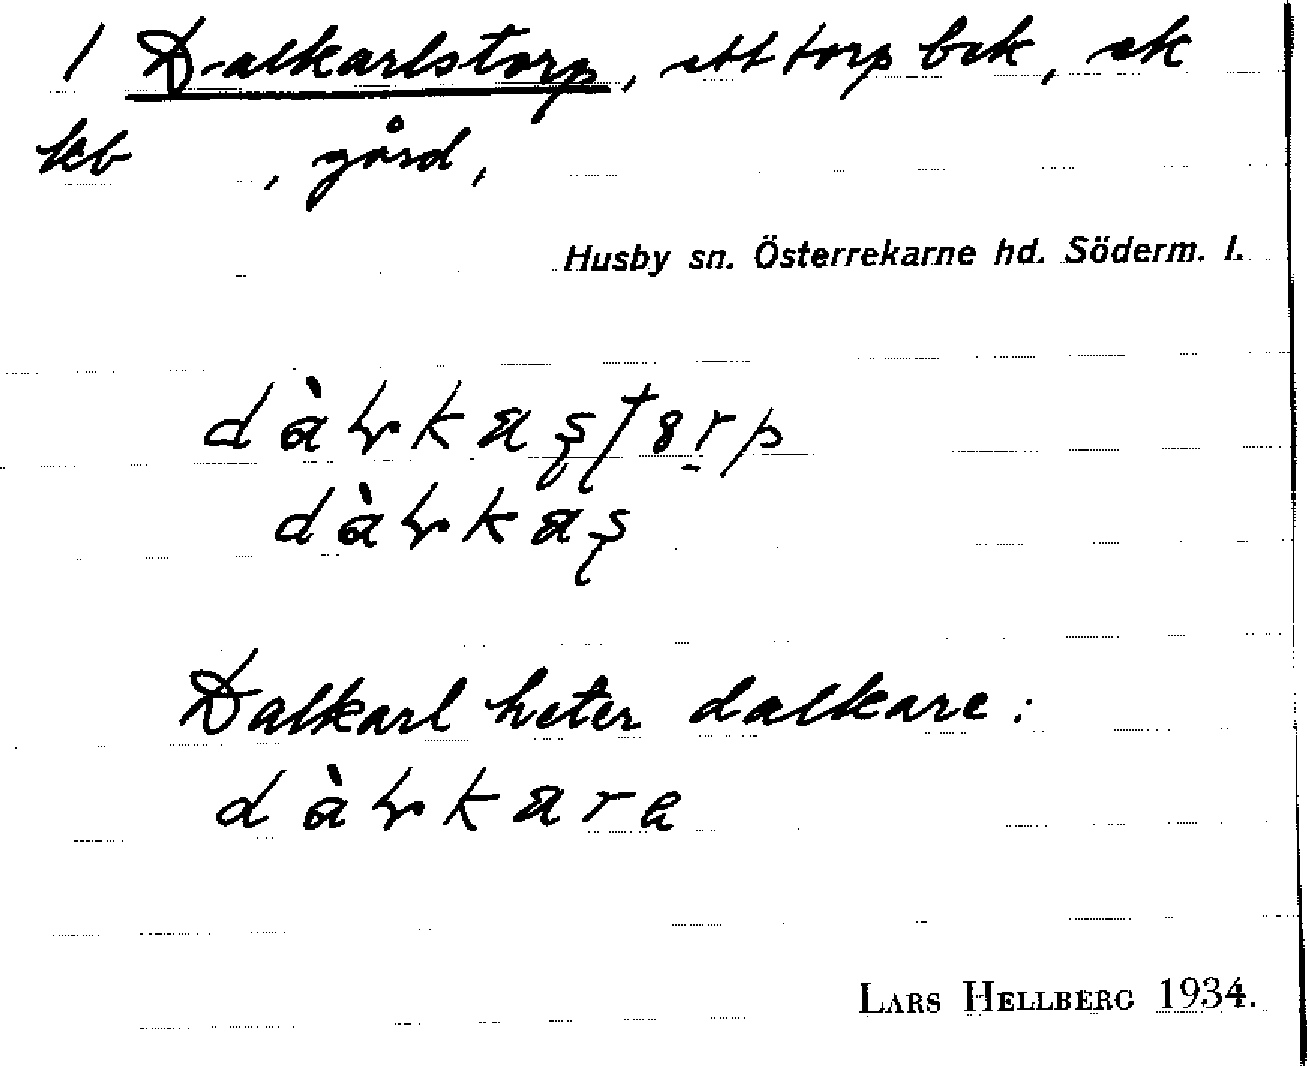 1 Dalkarlstorp, ett torp bek, ek
kb , gård,
Husby sn. Österrekarne hd. Söderm. l.
dàɽkaʂtȣrp
dàɽkaʂ
Dalkarl heter dalkare:
dàɽkara
LARS HELLBERG 1934.